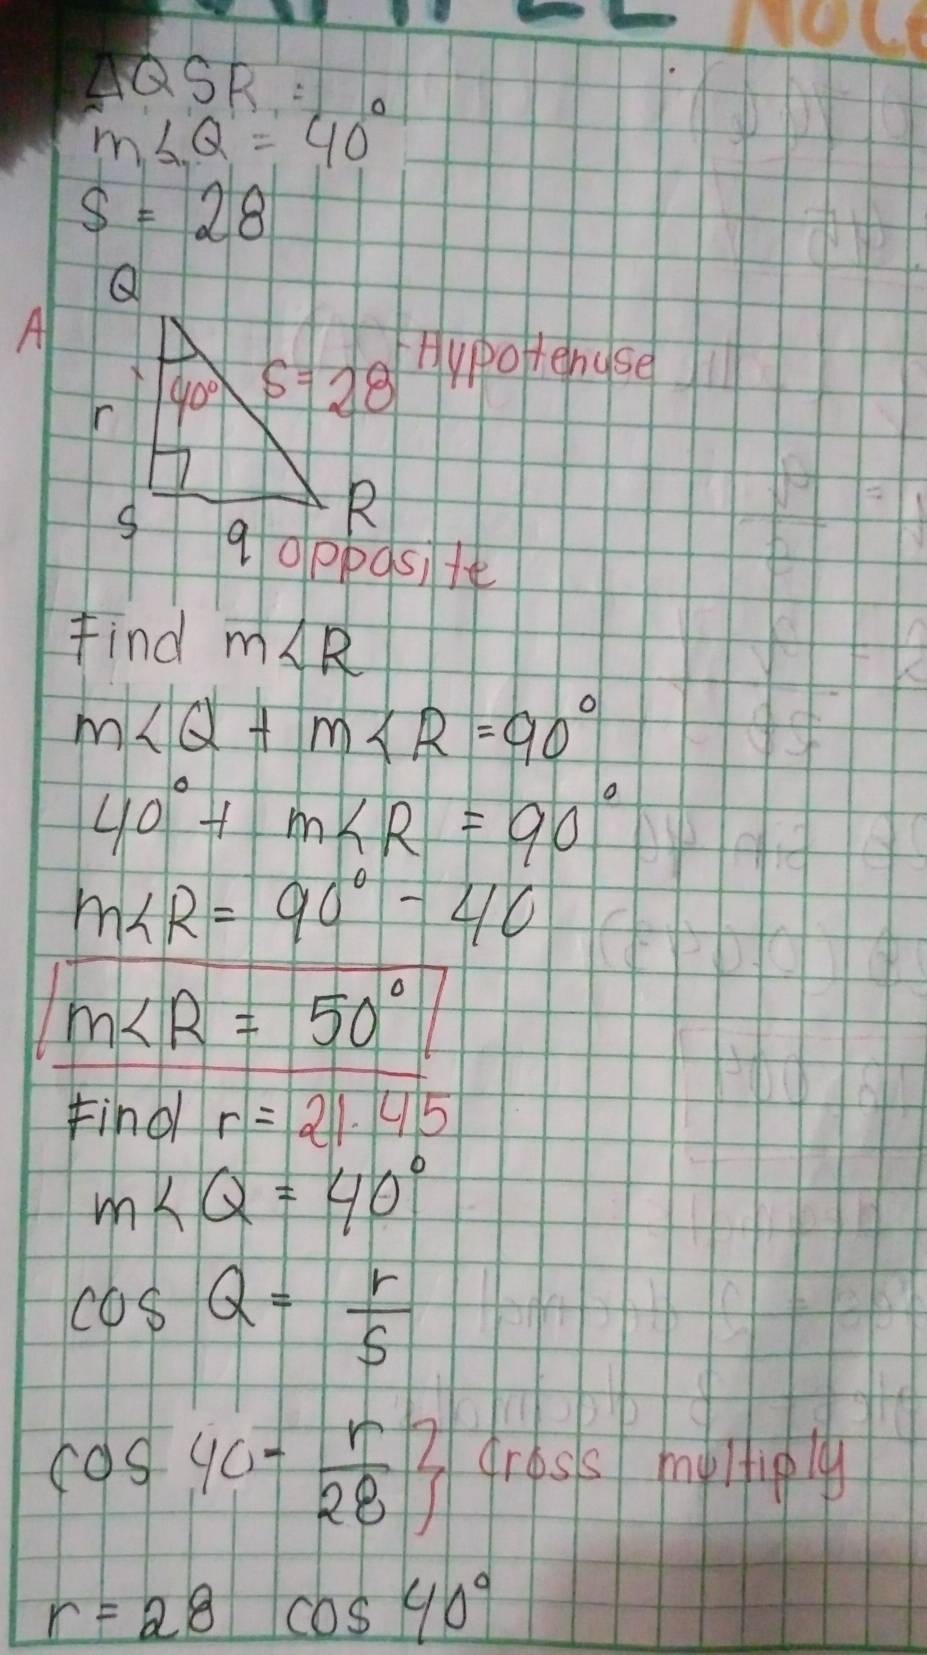 NOTE
ΔQSR :
m∠Q = 40°
S = 28
Q
A
40° S=28 Hypotenuse
r
S R
q opposite
Find m∠R
m∠Q + m∠R = 90°
40° + m∠R = 90°
m∠R = 90° - 40
m∠R = 50°
Find r = 21.45
m∠Q = 40°
cos Q = r/s
cos 40 = r/28 } cross multiply
r = 28 cos 40°